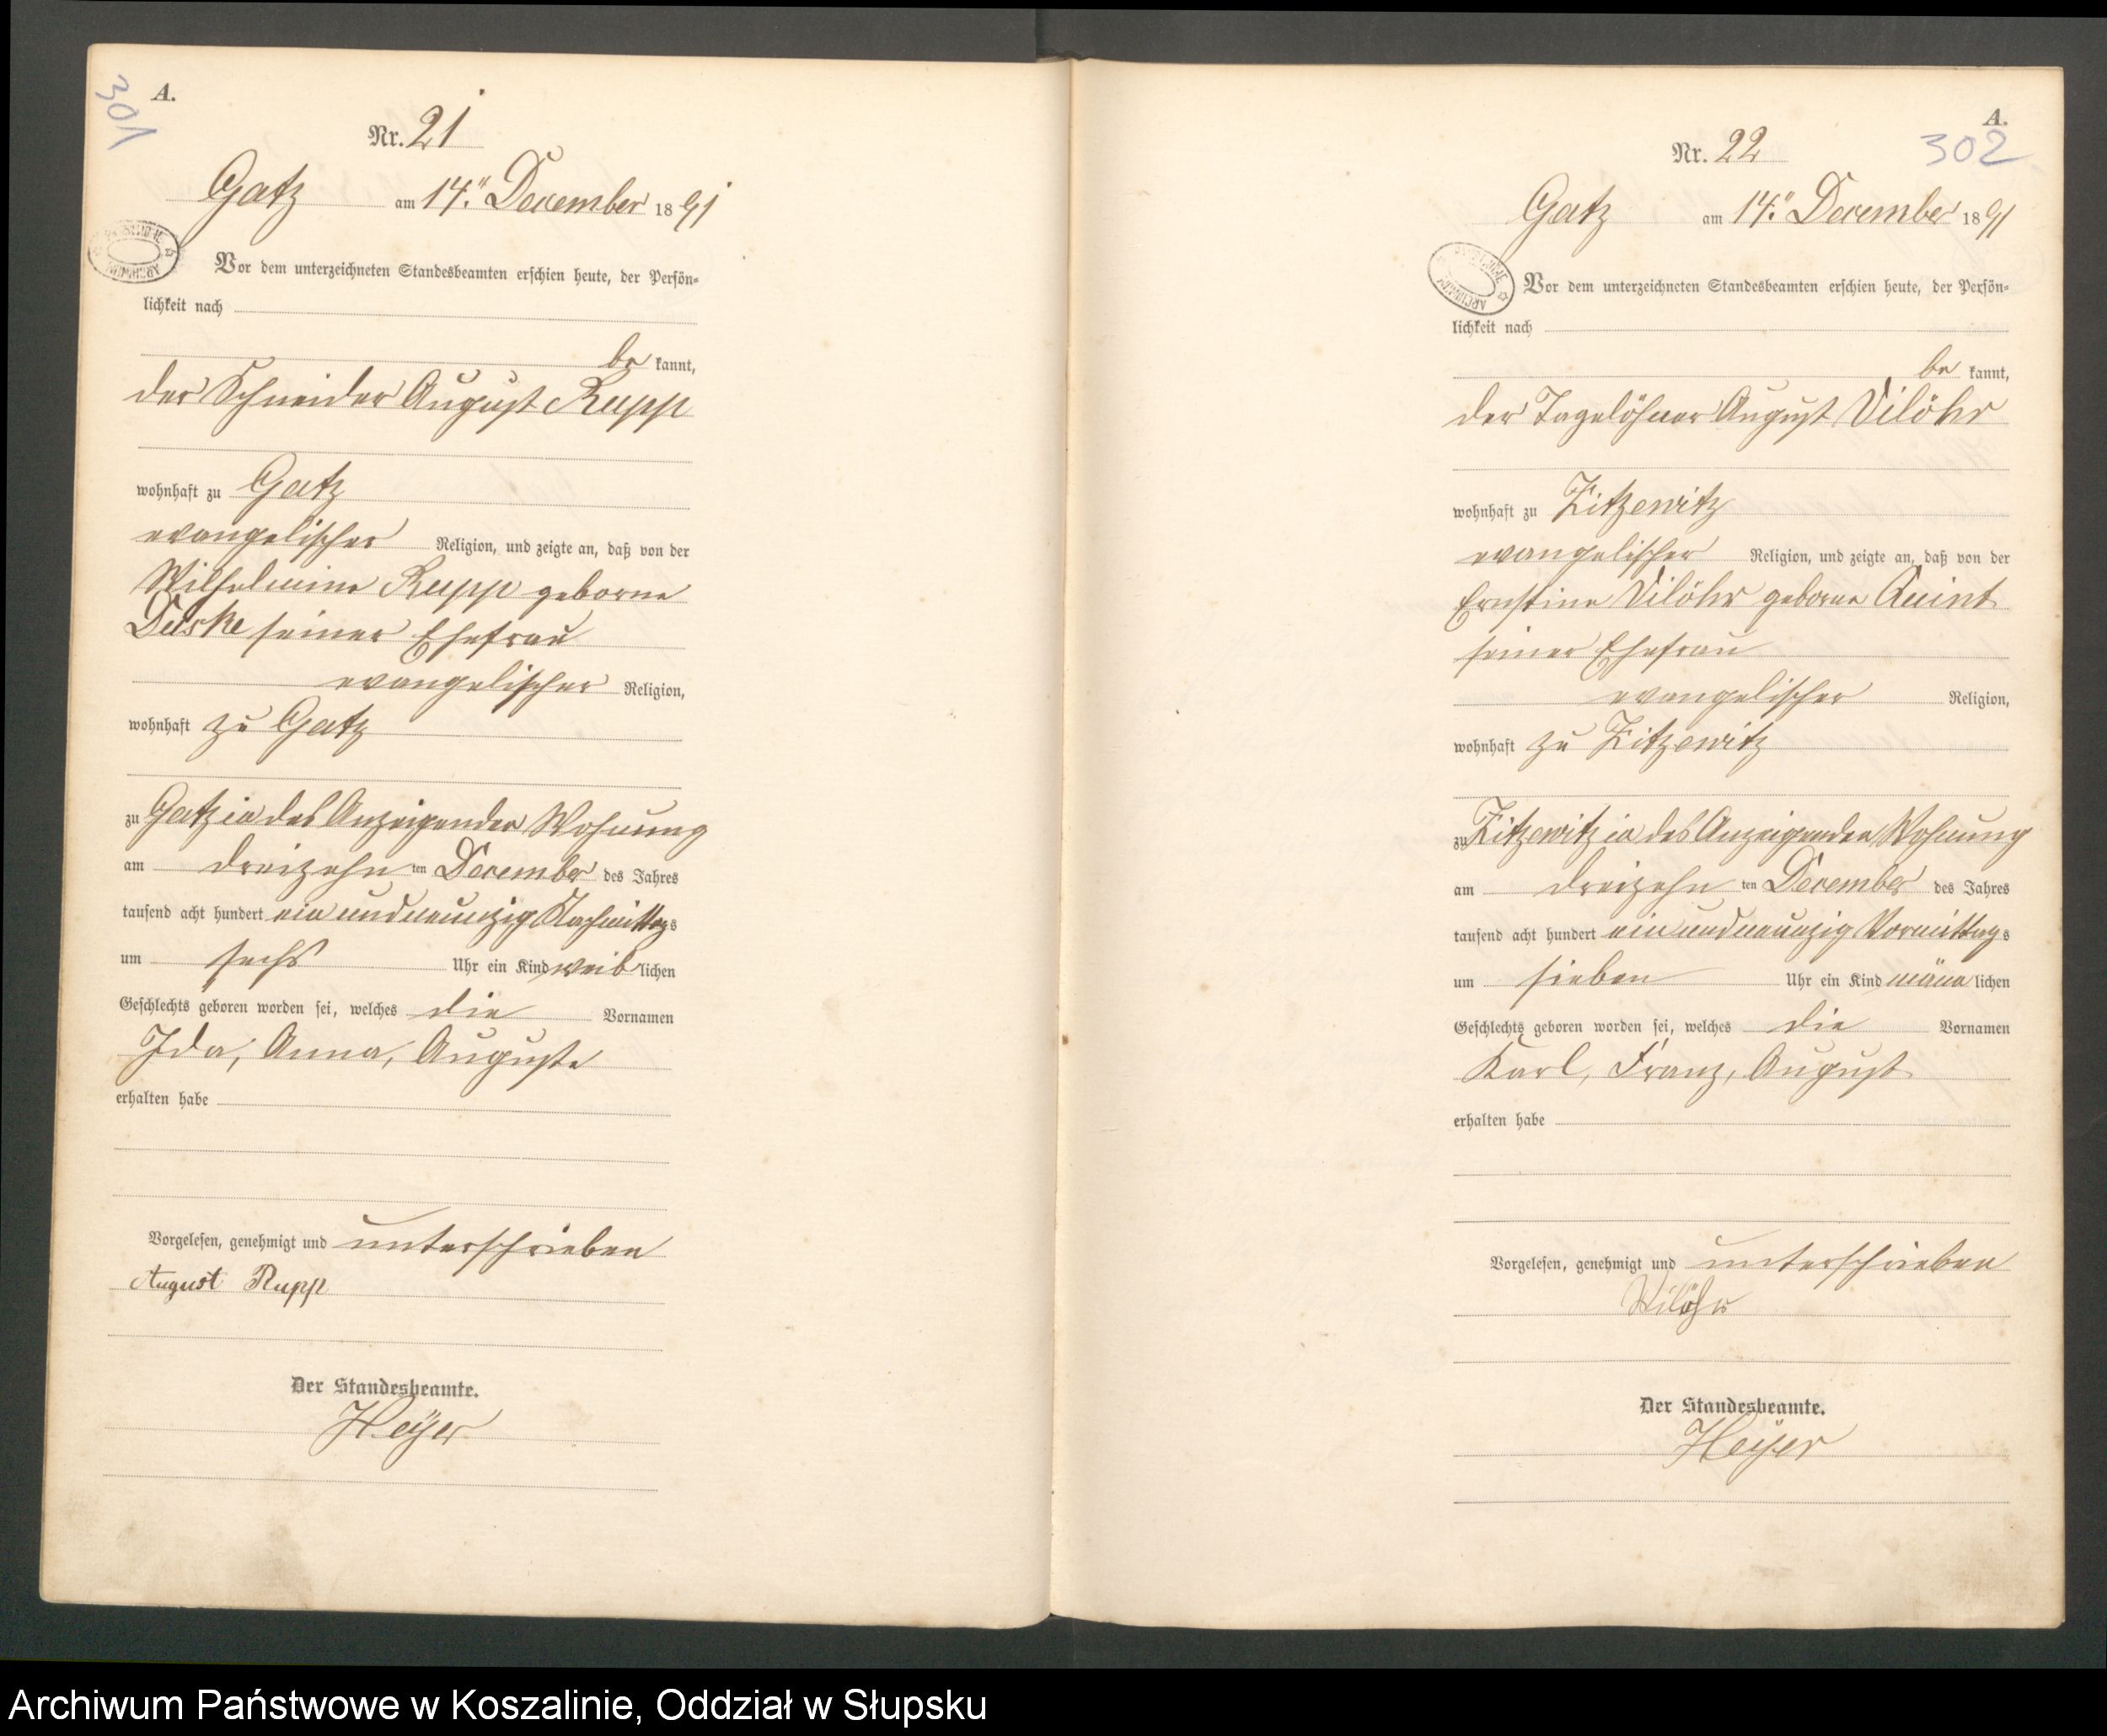 301
A.
Nr. 21
Gatz am 14ten December 1891
Vor dem unterzeichneten Standesbeamten erschien heute, der Persön-
lichkeit nach
be kannt,
der Schneider August Rupp
wohnhaft zu Gatz
evangelischer Religion, und zeigte an, daß von der
Wilhelmine Rupp geborne
Duske seiner Ehefrau
evangelischer Religion,
wohnhaft zu Gatz
zu Gatz in des Anzeigenden Wohnung
am dreizehn ten December des Jahres
tausend acht hundert ein und neunzig Nachmittags
um sechs Uhr ein Kind weib lichen
Geschlechts geboren worden sei, welches die Vornamen
Ida, Anna, Auguste
erhalten habe
Vorgelesen, genehmigt und unterschrieben
August Rupp
Der Standesbeamte.
Heÿer
A.
302
Nr. 22
Gatz am 14ten December 1891
Vor dem unterzeichneten Standesbeamten erschien heute, der Persön-
lichkeit nach
be kannt,
der Tagelöhner August Vilöhr
wohnhaft zu Zitzewitz
evangelischer Religion, und zeigte an, daß von der
Ernstine Vilöhr geborne Quint
seiner Ehefrau
evangelischer Religion,
wohnhaft zu Zitzewitz
zu Zitzewitz in des Anzeigenden Wohnung
am dreizehn ten December des Jahres
tausend acht hundert ein und neunzig Vormittags
um sieben Uhr ein Kind männ lichen
Geschlechts geboren worden sei, welches die Vornamen
Karl, Franz, August
erhalten habe
Vorgelesen, genehmigt und unterschrieben
Wilöhr
Der Standesbeamte.
Heÿer
Archiwum Państwowe w Koszalinie, Oddział w Słupsku